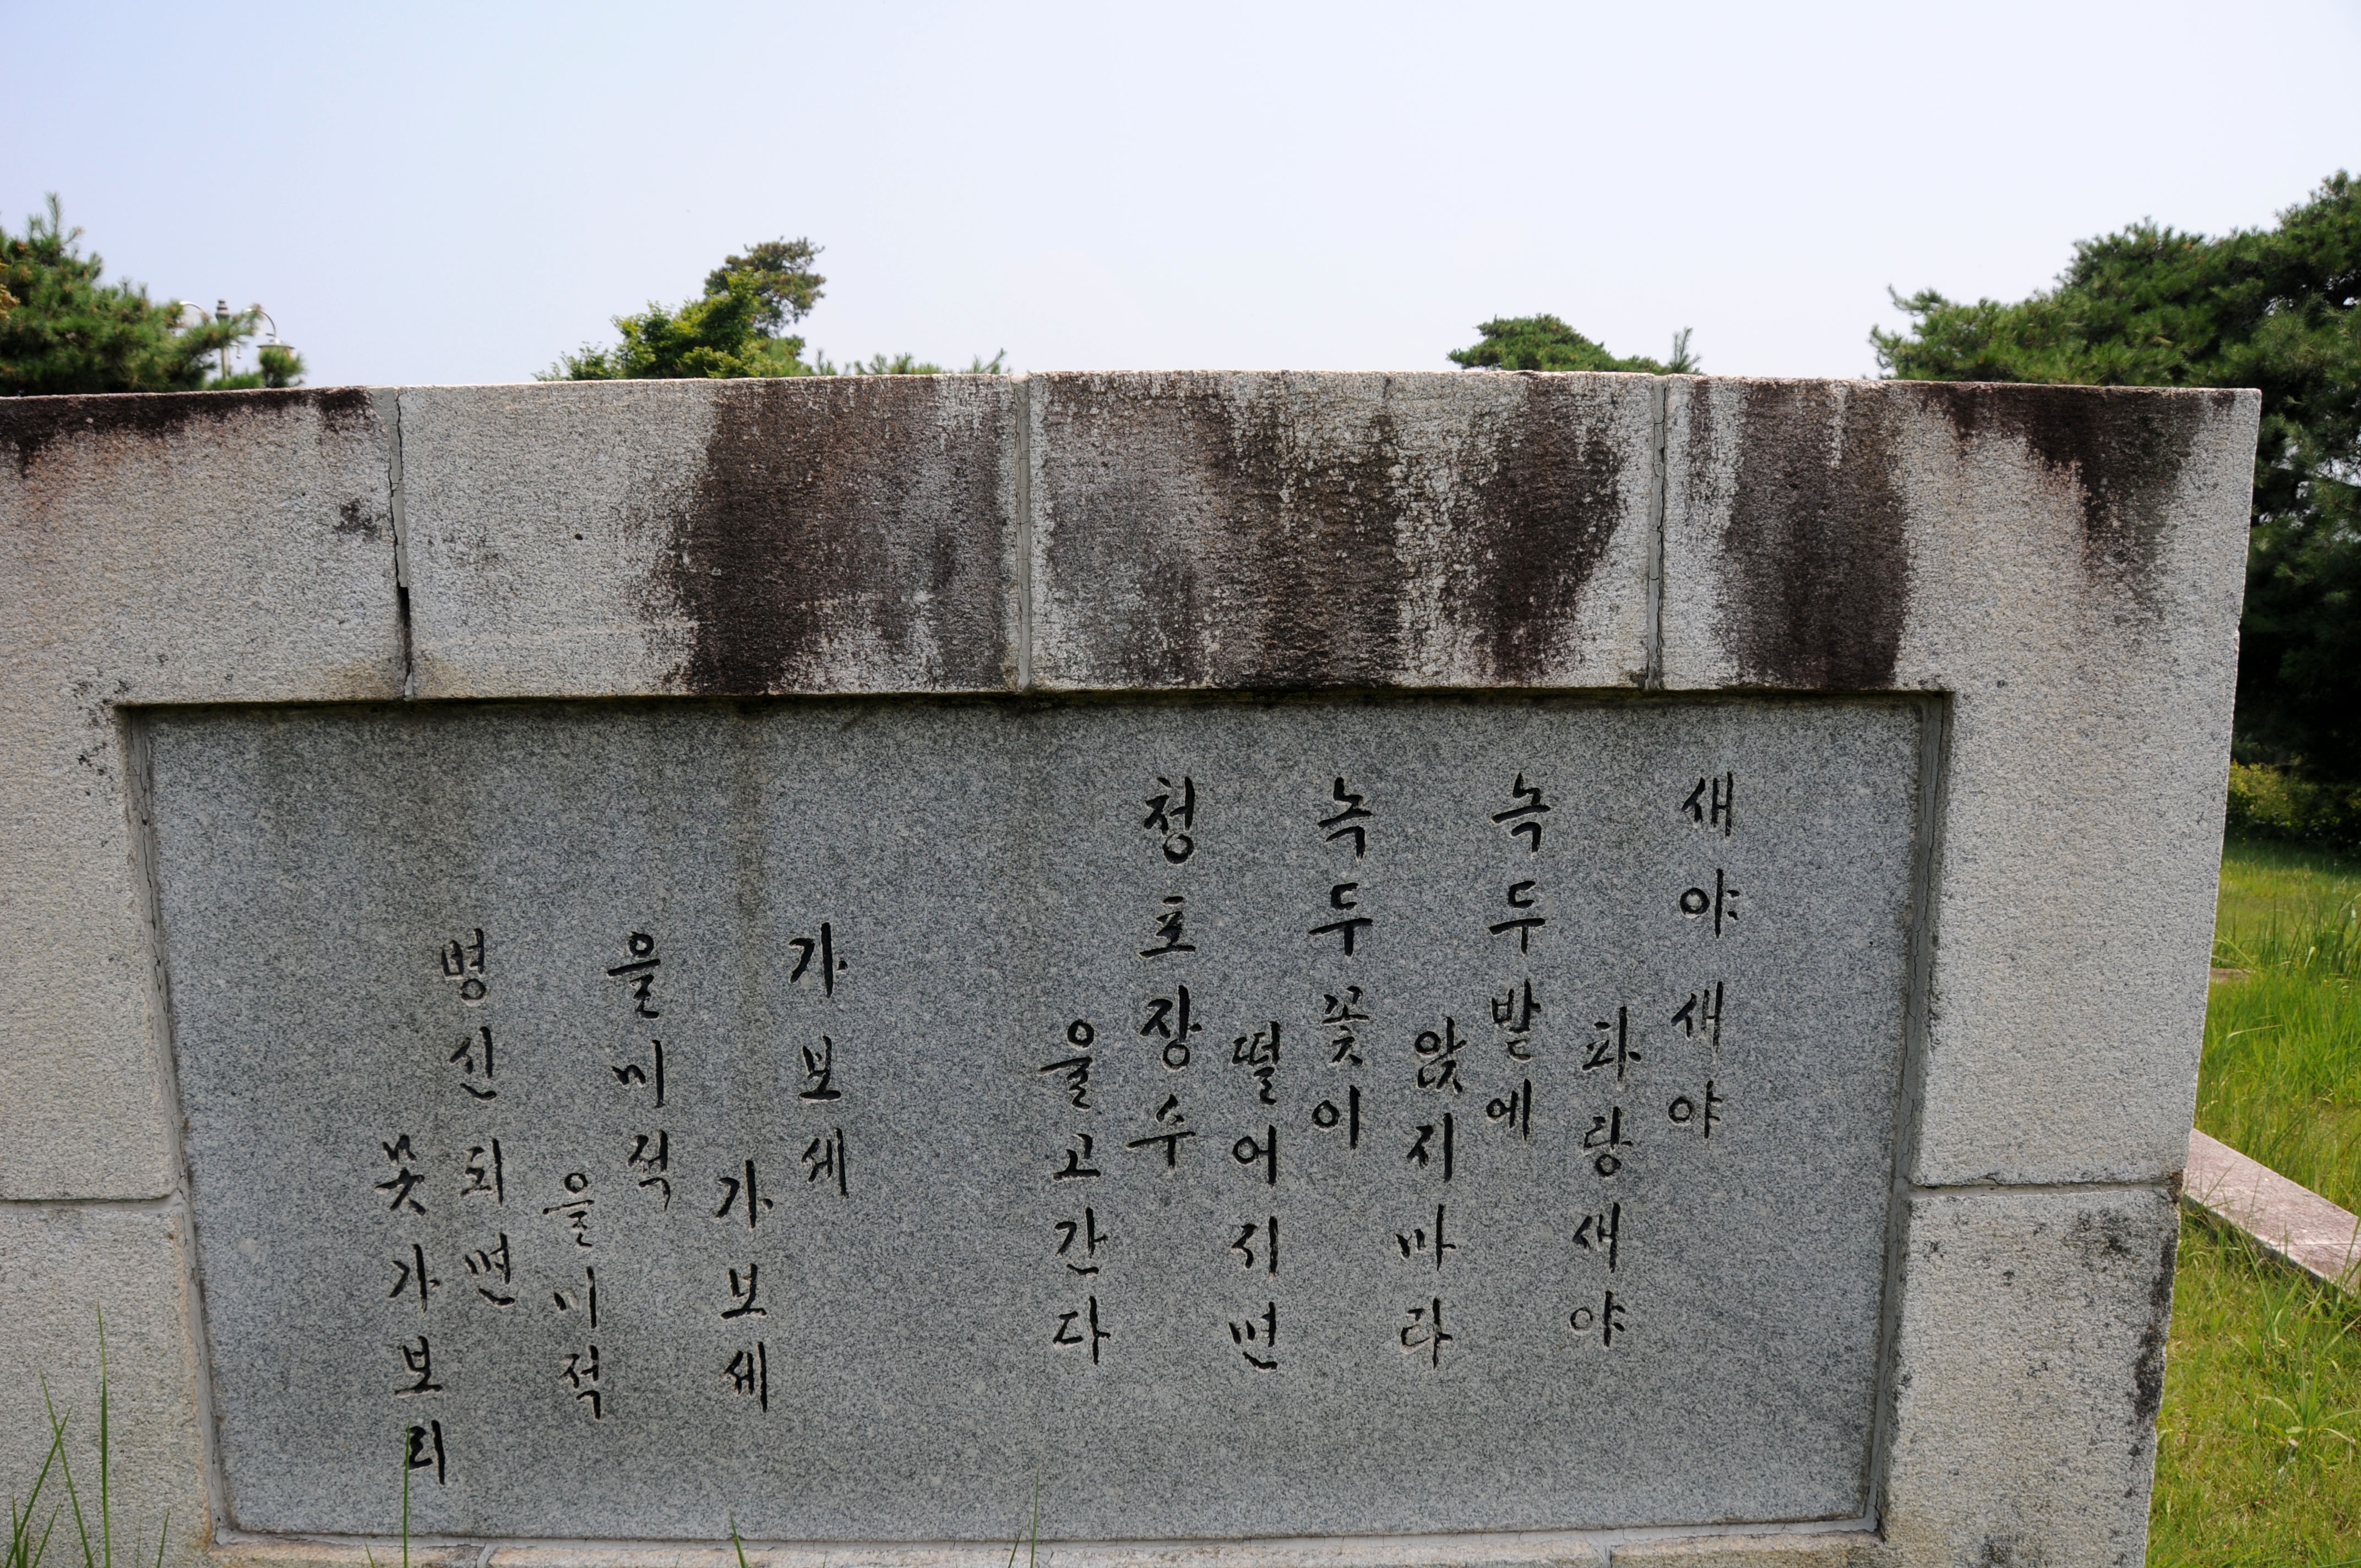 새야새야
파랑새야
녹두밭에
앉지마라
녹두꽃이
떨어지면
청포장수
울고간다
가보세
가보세
을미적
을미적
병신되면
못가보리